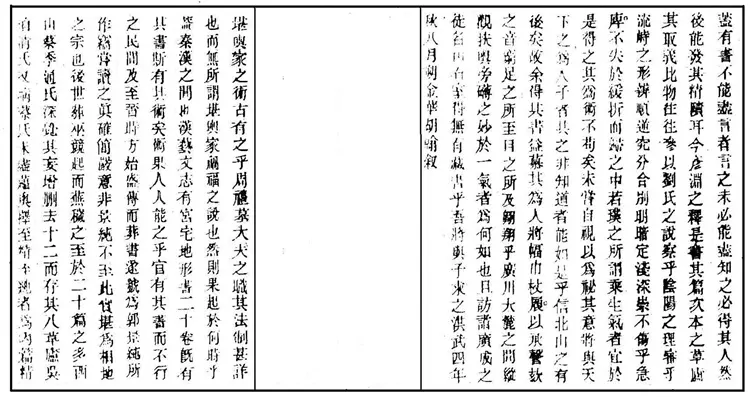 蓋有書不能盡言者言之未必能盡知之必得其人然
後能發其精賾耳今彥淵之釋是書其篇次本之草廬
其取義比物往往參以劉氏之說察乎陰陽之理審乎
流峙之形辨順逆究分合別明暗定淺深崇不傷乎急
庳不失於緩折而歸之中若璞之所謂乘生氣者宜於
是得之其為術不苟矣未嘗自視以為祕其意將與天
下之為人子者共之非知道者能如是乎信北山之有
後矣故余得其書益慕其為人將幅巾杖屨以承謦欬
之音窮足之所至目之所及翱翔乎廣川大麓之間縱
觀扶輿旁礴之妙於一氣者為何如也且訪諸廣成之
徒有至得無有藏書乎吾將與子求之洪武四年
秋八月朔金華胡翰叙
堪輿家之術古有之乎周禮墓大夫之職其法制甚詳
也而無所謂堪輿家禍福之說也然則果起於何時乎
蓋秦漢之間也漢藝文志有宮宅地形書二十卷既有
其書斯有其術矣術果人人能之乎官有其書而不行
之民間及至晉時方始盛傳而葬書遂號為郭景純所
作竊嘗讀之真確簡嚴意非景純不至此實堪為相地
之宗也後世葬巫競起而蕪穢之至於二十篇之多西
山蔡季通氏深疾其妄增刪去十二而存其八草廬吳
伯清氏又病蔡氏未盡蘊奧擇至精至純者為內篇精